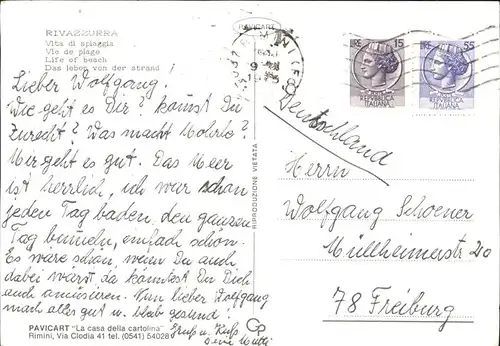 RIVAZZURRA
Vita di spiaggia
Vie de plage
Life of beach
Das leben von der strand
Lieber Wolfgang.
Wie geht es Dir? kommst Du
Zurecht? Was macht
Mir geht es gut. Das Meer
ist herrlich, ich war schon
jeden Tag baden, den ganzen
Tag bummeln, einfach schön.
Es wäre schön, wenn Du auch
dabei wärst, da könntest Du Dich
auch amüsieren. Nun lieber Wolfgang
mach alles gut u. bleib gesund!
Gruß u. Kuß
Deine Mutti
PAVICART "La casa della cartolina"
Rimini, Via Clodia 41 tel. (0541) 54028
RIPRODUZIONE VIETATA
PAVICART
LIRE 15
REPUBBLICA
ITALIANA
LIRE 55
REPUBBLICA
ITALIANA
Deutschland
Herrn
Wolfgang Schoener
Müllheimerstr 20
78 Freiburg